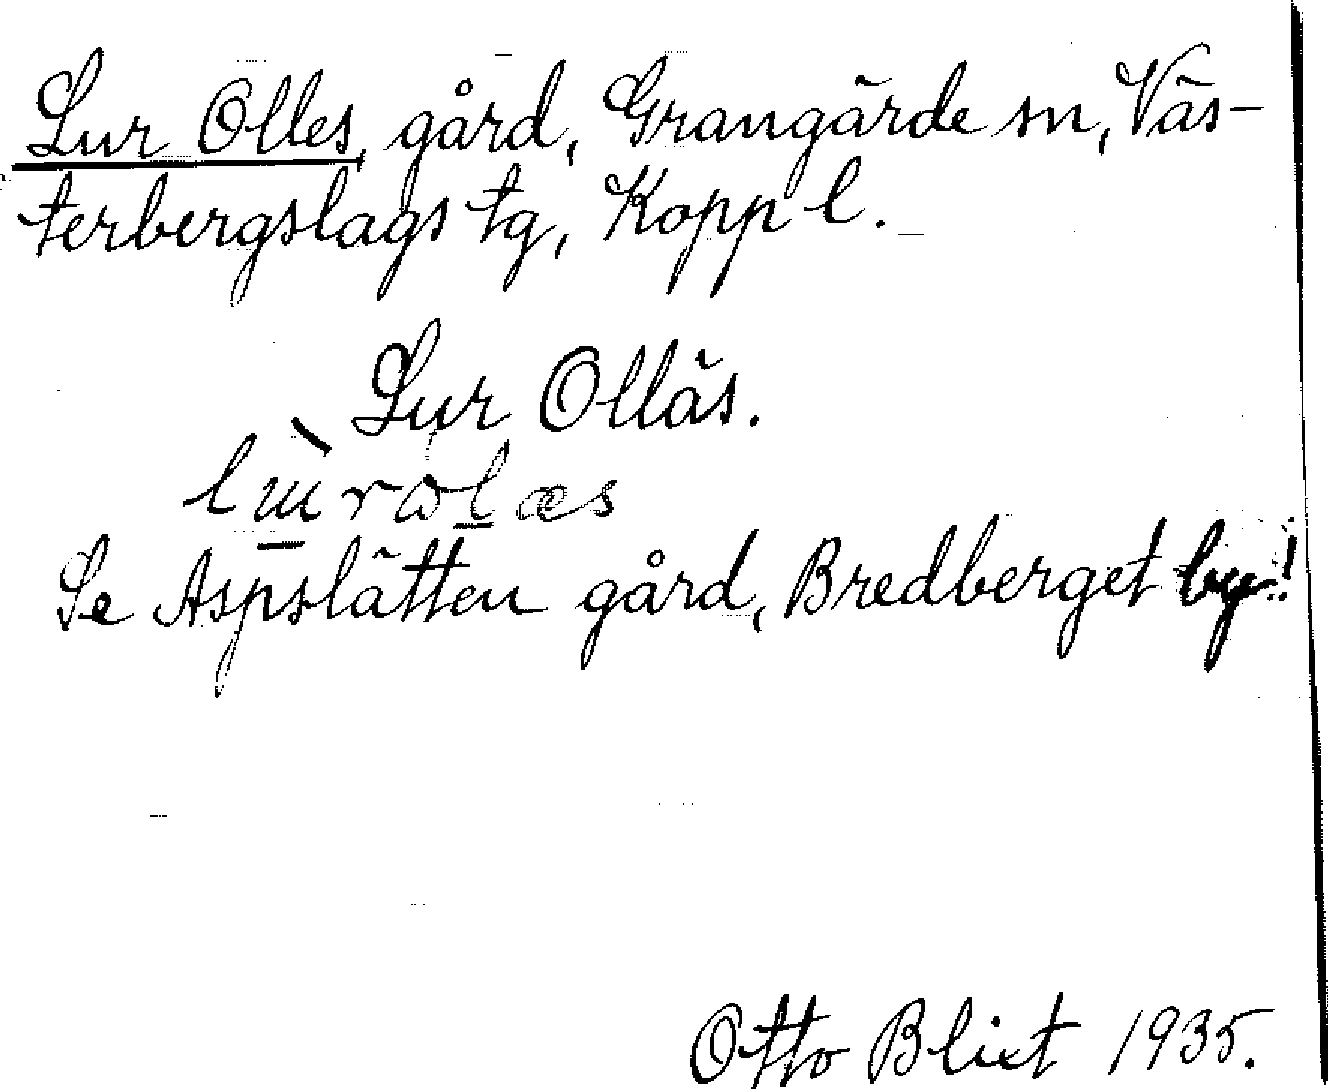 Lur Olles, gård, Grangärde sn, Väs-
terbergslags tg, Kopp l.
Lur Olläs.
Se Aspslätten gård, Bredberget by!
Otto Blixt 1935.